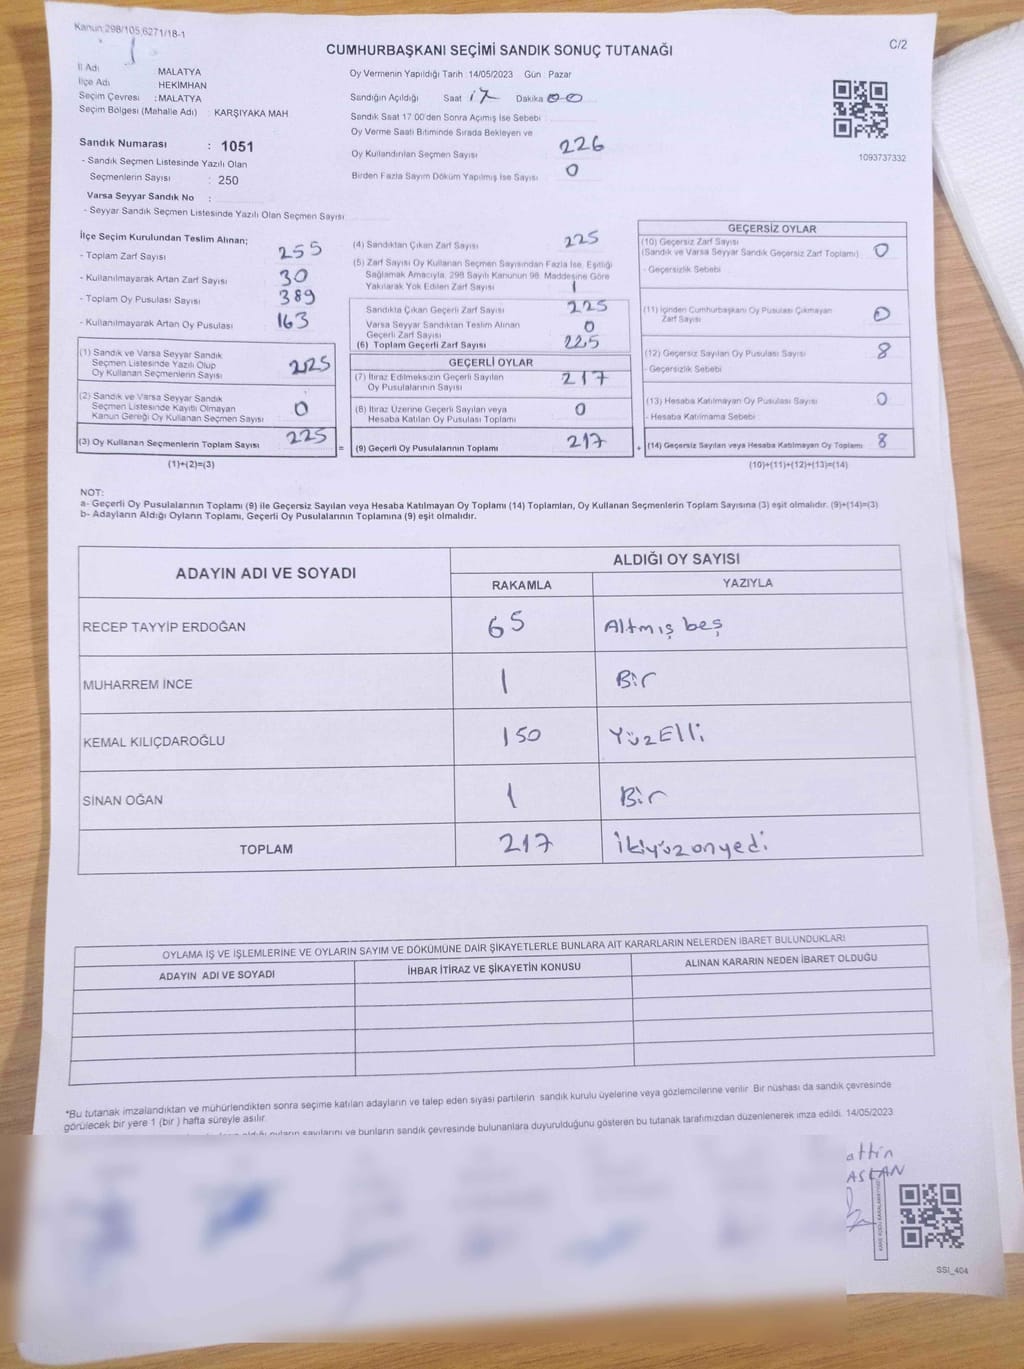 Kanun:298/105,6271/18-1
C/2
CUMHURBAŞKANI SEÇİMİ SANDIK SONUÇ TUTANAĞI
İl Adı MALATYA
İlçe Adı HEKİMHAN
Seçim Çevresi :MALATYA
Seçim Bölgesi (Mahalle Adı) : KARŞIYAKA MAH
Sandık Numarası : 1051
- Sandık Seçmen Listesinde Yazılı Olan
Seçmenlerin Sayısı : 250
Varsa Seyyar Sandık No :
- Seyyar Sandık Seçmen Listesinde Yazılı Olan Seçmen Sayısı
Oy Vermenin Yapıldığı Tarih :14/05/2023 Gün : Pazar
Sandığın Açıldığı Saat 17 Dakika 00
Sandık Saat 17.00'den Sonra Açımış İse Sebebi :
Oy Verme Saati Bitiminde Sırada Bekleyen ve
Oy Kullandırılan Seçmen Sayısı 226
Birden Fazla Sayım Döküm Yapılmış İse Sayısı 0
1093737332
İlçe Seçim Kurulundan Teslim Alınan;
- Toplam Zarf Sayısı 255
- Kullanılmayarak Artan Zarf Sayısı 30
- Toplam Oy Pusulası Sayısı 389
- Kullanılmayarak Artan Oy Pusulası 163
(1) Sandık ve Varsa Seyyar Sandık
Seçmen Listesinde Yazılı Olup
Oy Kullanan Seçmenlerin Sayısı 225
(2) Sandık ve Varsa Seyyar Sandık
Seçmen Listesinde Kayıtlı Olmayan
Kanun Gereği Oy Kullanan Seçmen Sayısı 0
(3) Oy Kullanan Seçmenlerin Toplam Sayısı 225 =
(1)+(2)=(3)
(4) Sandıktan Çıkan Zarf Sayısı 225
(5) Zarf Sayısı Oy Kullanan Seçmen Sayısından Fazla İse, Eşitliği
Sağlamak Amacıyla, 298 Sayılı Kanunun 98. Maddesine Göre
Yakılarak Yok Edilen Zarf Sayısı 1
Sandıkta Çıkan Geçerli Zarf Sayısı 225
Varsa Seyyar Sandıktan Teslim Alınan
Geçerli Zarf Sayısı 0
(6) Toplam Geçerli Zarf Sayısı 225
GEÇERLİ OYLAR
(7) İtiraz Edilmeksizin Geçerli Sayılan
Oy Pusulalarının Sayısı 217
(8) İtiraz Üzerine Geçerli Sayılan veya
Hesaba Katılan Oy Pusulası Toplamı 0
(9) Geçerli Oy Pusulalarının Toplamı 217 +
GEÇERSİZ OYLAR
(10) Geçersiz Zarf Sayısı
(Sandık ve Varsa Seyyar Sandık Geçersiz Zarf Toplamı) 0
- Geçersizlik Sebebi
(11) İçinden Cumhurbaşkanı Oy Pusulası Çıkmayan
Zarf Sayısı 0
(12) Geçersiz Sayılan Oy Pusulası Sayısı 8
- Geçersizlik Sebebi
(13) Hesaba Katılmayan Oy Pusulası Sayısı 0
- Hesaba Katılmama Sebebi
(14) Geçersiz Sayılan veya Hesaba Katılmayan Oy Toplamı 8
(10)+(11)+(12)+(13)=(14)
NOT:
a- Geçerli Oy Pusulalarının Toplamı (9) ile Geçersiz Sayılan veya Hesaba Katılmayan Oy Toplamı (14) Toplamları, Oy Kullanan Seçmenlerin Toplam Sayısına (3) eşit olmalıdır. (9)+(14)=(3)
b- Adayların Aldığı Oyların Toplamı, Geçerli Oy Pusulalarının Toplamına (9) eşit olmalıdır.
ADAYIN ADI VE SOYADI ALDIĞI OY SAYISI
RAKAMLA YAZIYLA
RECEP TAYYİP ERDOĞAN 65 Altmış beş
MUHARREM İNCE 1 Bir
KEMAL KILIÇDAROĞLU 150 YüzElli
SİNAN OĞAN 1 Bir
TOPLAM 217 ikiyüzonyedi
OYLAMA İŞ VE İŞLEMLERİNE VE OYLARIN SAYIM VE DÖKÜMÜNE DAİR ŞİKAYETLERLE BUNLARA AİT KARARLARIN NELERDEN İBARET BULUNDUKLARI
ADAYIN ADI VE SOYADI İHBAR İTİRAZ VE ŞİKAYETİN KONUSU ALINAN KARARIN NEDEN İBARET OLDUĞU
*Bu tutanak imzalandıktan ve mühürlendikten sonra seçime katılan adayların ve talep eden siyasi partilerin sandık kurulu üyelerine veya gözlemcilerine verilir. Bir nüshası da sandık çevresinde
görülecek bir yere 1 (bir ) hafta süreyle asılır.
oyların sayılarını ve bunların sandık çevresinde bulunanlara duyurulduğunu gösteren bu tutanak tarafımızdan düzenlenerek imza edildi. 14/05/2023
attin
ASLAN
SSI_404